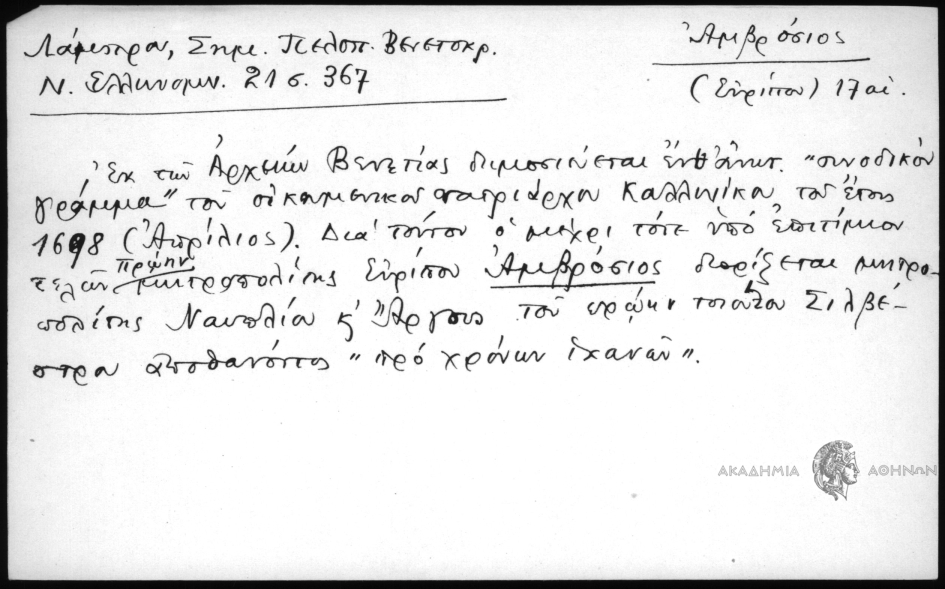 Λάμπρου, Σημ. Πελοπ. Βενετοκρ.
Ν. Ἑλληνομν. 21 σ. 367
Ἀμβρόσιος
(Εὐρίπου) 17 αἰ.
Ἐκ τῶν Ἀρχειῶν Βενετίας δημοσιεύεται ἐνθ' ἀνωτ. "συνοδικὸν
γράμμα" τοῦ οἰκουμενικοῦ πατριάρχου Καλλινίκου τοῦ ἔτους
1698 (Ἀπρίλιος). Διὰ τούτου ὁ μέχρι τότε ὑπὸ ἐπιτίμιον
τελῶν πρώην μητροπολίτης Εὐρίπου Ἀμβρόσιος διορίζεται μητρο-
πολίτης Ναυπλίου κ' Ἄργους τοῦ πρώην τοιούτου Σιλβέ-
στρου ἀποθανόντος "πρό χρόνων ἱκανῶν".
ΑΚΑΔΗΜΙΑ ΑΘΗΝΩΝ